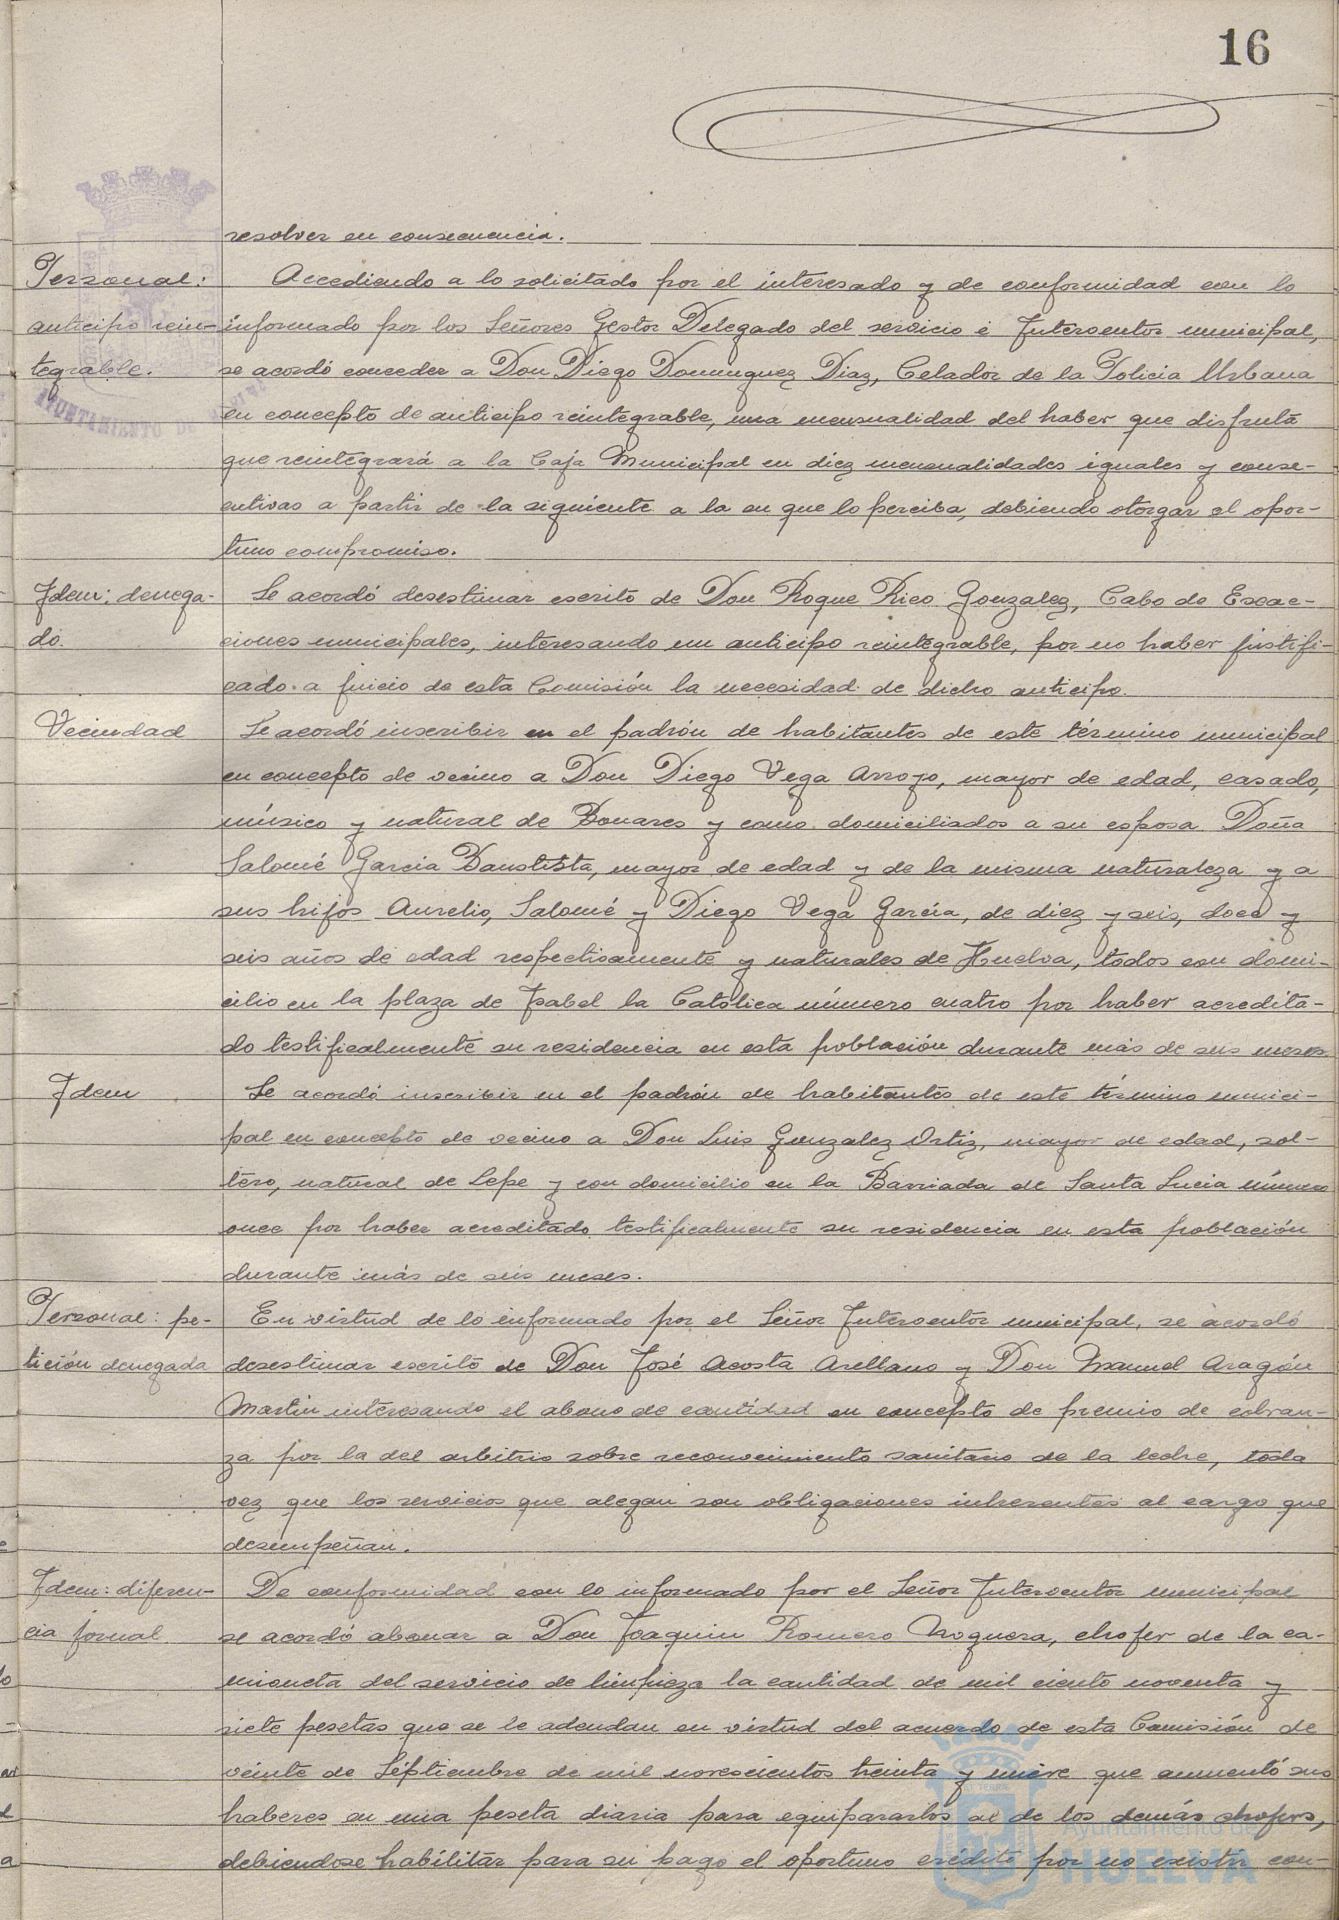 16
resolver en consecuencia.
Personal: Accediendo a lo solicitado por el interesado y de conformidad con lo
anticipo rein- informado por los Señores Gestor Delegado del servicio é Interventor municipal,
tegrable. se acordó conceder a Don Diego Dominguez Diaz, Celador de la Policia Urbana
en concepto de anticipo reintegrable, una mensualidad del haber que disfruta
que reintegrará a la Caja Municipal en diez mensualidades iguales y conse-
cutivas a partir de la siguiente a la en que lo perciba, debiendo otorgar el opor-
tuno compromiso.
Idem: denega- Se acordó desestimar escrito de Don Roque Rico Gonzalez, Cabo de Exac-
do. ciones municipales, interesando un anticipo reintegrable, por no haber justifi-
cado a juicio de esta Comisión la necesidad de dicho anticipo.
Vecindad Se acordó inscribir en el padrón de habitantes de este término municipal
en concepto de vecino a Don Diego Vega Arroyo, mayor de edad, casado,
músico y natural de Bonares y como domiciliados a su esposa Doña
Salomé Garcia Bautista, mayor de edad y de la misma naturaleza y a
sus hijos Aurelio, Salomé y Diego Vega García, de diez y seis, doce y
seis años de edad respectivamente y naturales de Huelva, todos con domi-
cilio en la plaza de Isabel la Católica número cuatro por haber acredita-
do testificalmente su residencia en esta población durante más de seis meses.
Idem Se acordó inscribir en el padrón de habitantes de este término munici-
pal en concepto de vecino a Don Luis Gonzalez Ortiz, mayor de edad, sol-
tero, natural de Lepe y con domicilio en la Barriada de Santa Lucia número
once por haber acreditado testificalmente su residencia en esta población
durante más de seis meses.
Personal: pe- En virtud de lo informado por el Señor Interventor municipal, se acordó
tición denegada desestimar escrito de Don José Acosta Arellano y Don Manuel Aragón
Martin interesando el abono de cantidad en concepto de premio de cobran-
za por la del arbitrio sobre reconocimiento sanitario de la leche, toda
vez que los servicios que alegan son obligaciones inherentes al cargo que
desempeñan.
Idem: diferen- De conformidad con lo informado por el Señor Interventor municipal
cia jornal se acordó abonar a Don Joaquin Romero Noguera, chofer de la ca-
mioneta del servicio de limpieza la cantidad de mil ciento noventa y
siete pesetas que se le adeudan en virtud del acuerdo de esta Comisión de
veinte de Séptiembre de mil novescientos treinta y nueve que aumentó sus
haberes en una peseta diaria para equipararlos al de los demás chofers,
debiendose habilitar para su pago el oportuno crédito por no existir con-
AYUNTAMIENTO DE
Ayuntamiento de
HUELVA